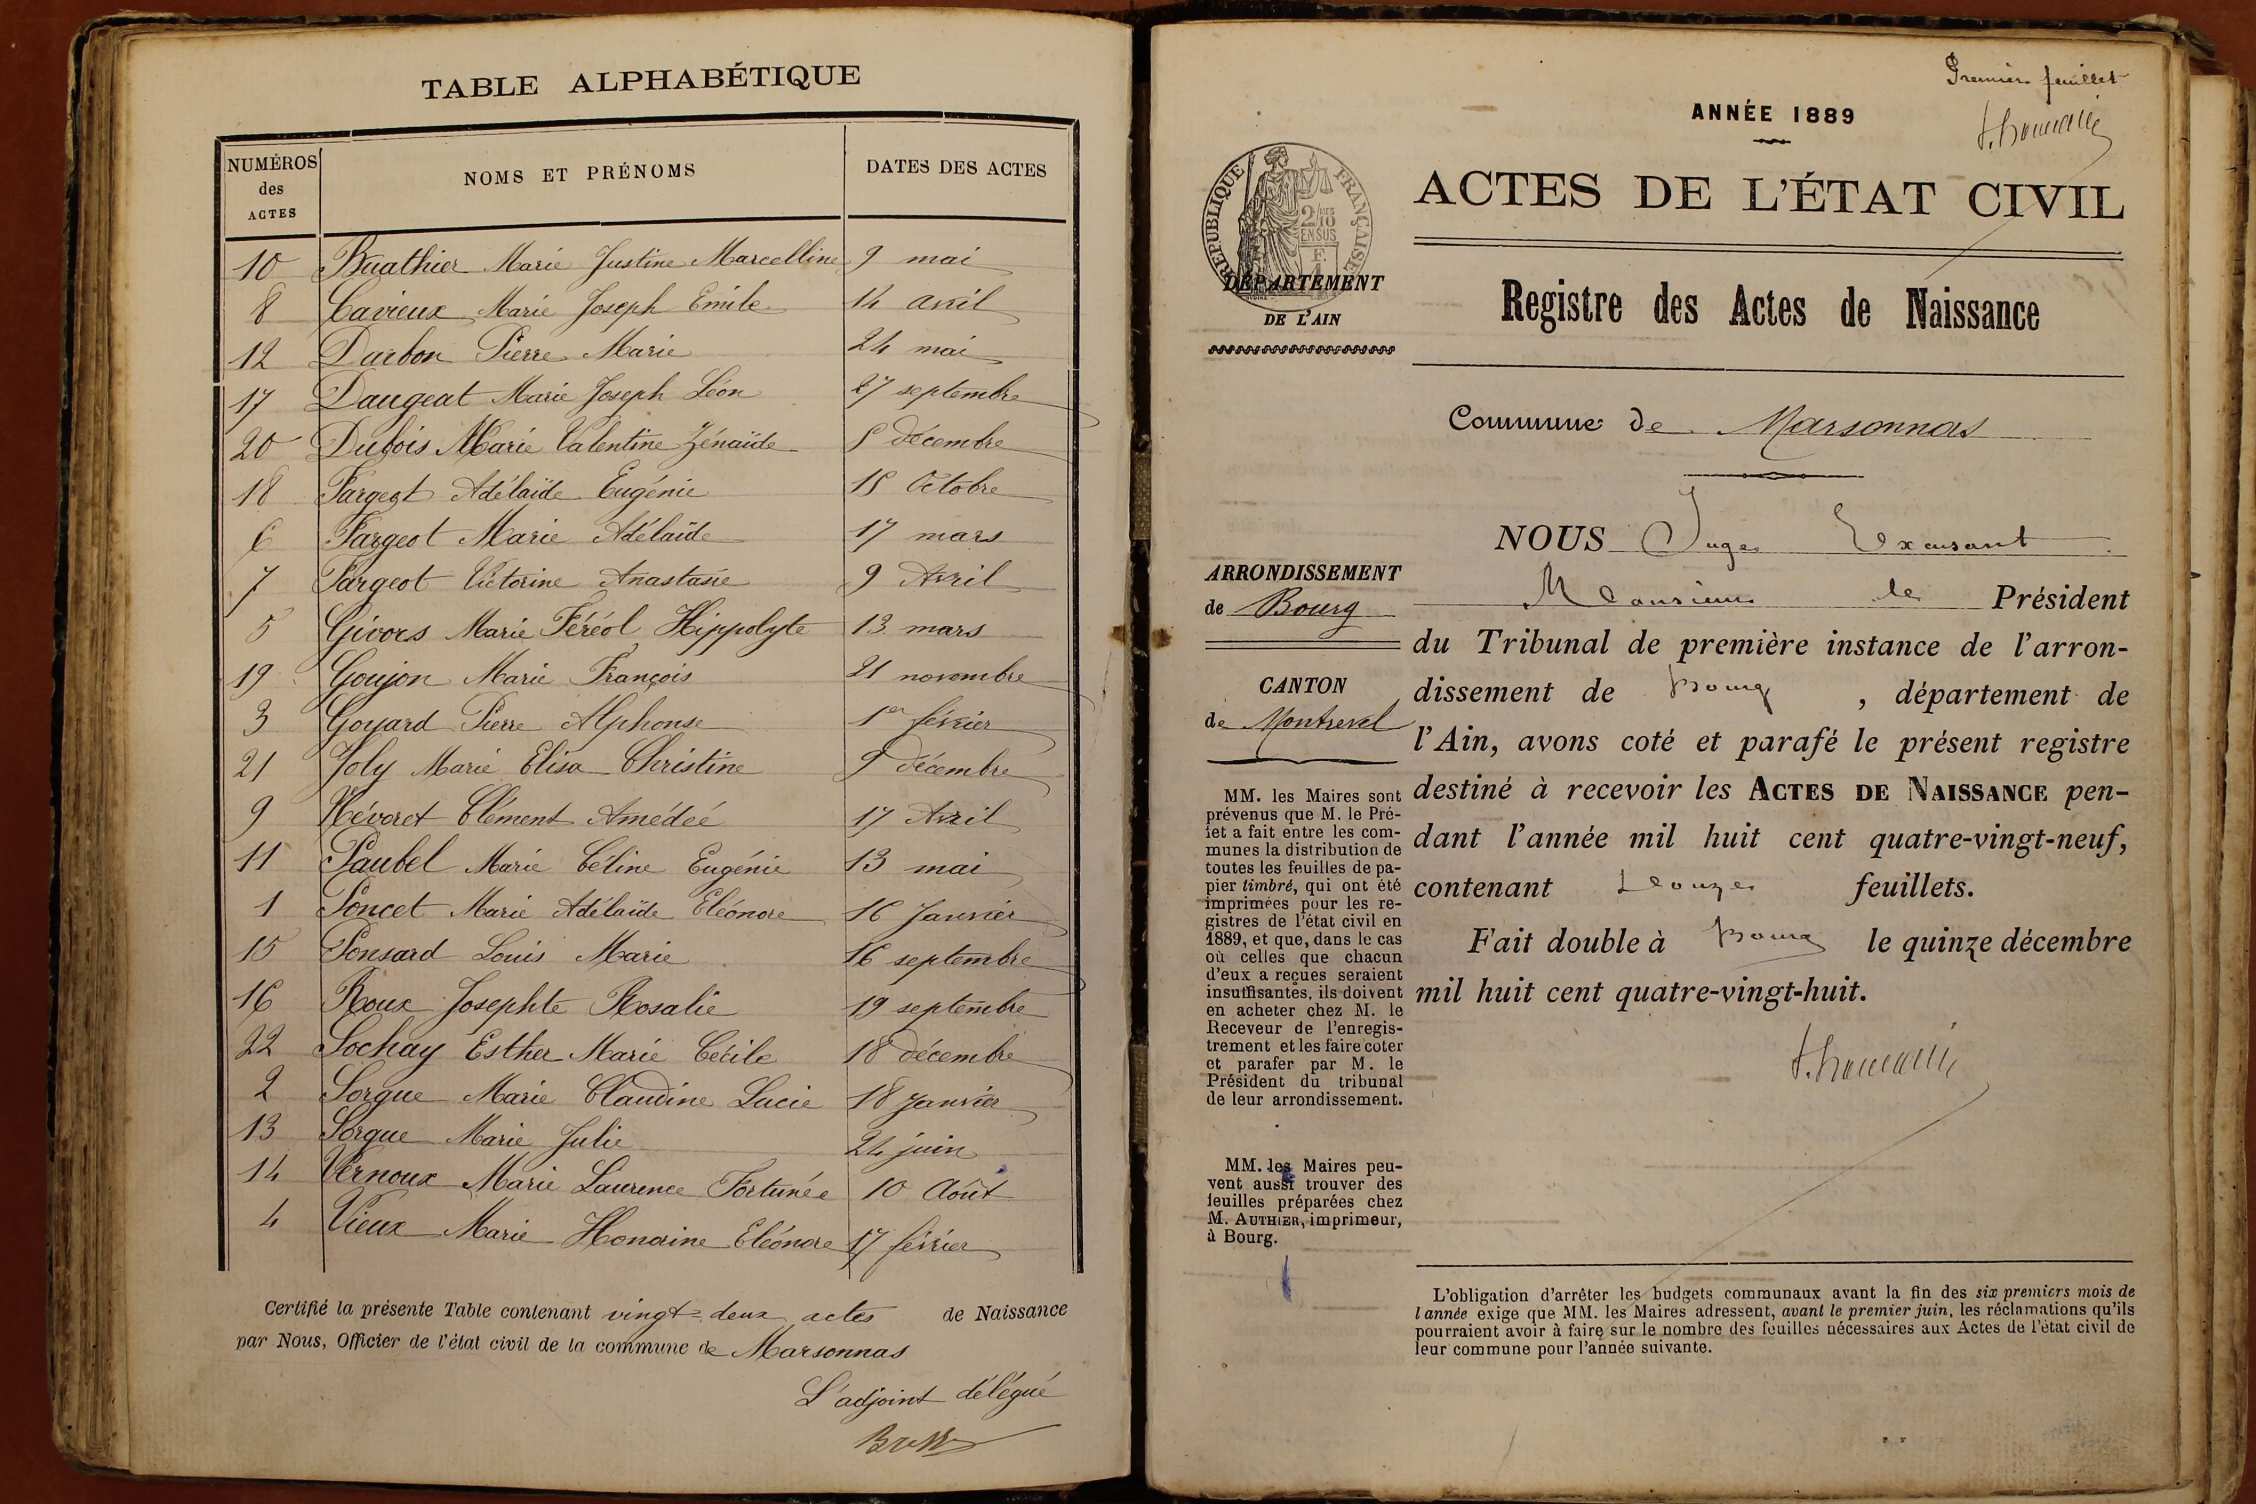 TABLE ALPHABÉTIQUE
NUMÉROS des ACTES
NOMS ET PRÉNOMS
DATES DES ACTES
10 Buathier Marie Justine Marcelline 9 mai
8 Cavieux Marie Joseph Emile 14 avril
12 Darbon Pierre Marie 24 mai
17 Daugeat Marie Joseph Léon 27 septembre
20 Dubois Marie Valentine Zénaïde 5 décembre
18 Fargeot Adélaïde Eugénie 15 Octobre
6 Fargeot Marie Adélaïde 17 mars
7 Fargeot Victorine Anastasie 9 Avril
5 Givors Marie Féréol Hippolyte 13 mars
19 Goujon Marie François 21 novembre
3 Goyard Pierre Alphonse 1er février
21 Joly Marie Elisa Christine 9 décembre
9 Névoret Clément Amédeé 17 Avril
11 Paubel Marie Céline Eugénie 13 mai
1 Poncet Marie Adélaïde Eléonore 16 Janvier
15 Ponsard Louis Marie 16 septembre
16 Roux Josephte Rosalie 19 septembre
22 Sochay Esther Marie Cécile 18 décembre
2 Sorgue Marie Claudine Lucie 18 Janvier
13 Sorgue Marie Julie 24 juin
14 Vernoux Marie Laurence Fortunée 10 Août
4 Vieux Marie Honorine Eléonore 17 février
Certifié la présente Table contenant vingt-deux actes de Naissance
par Nous, Officier de l'état civil de la commune de Marsonnas
L'adjoint délégué
Premier feuillet
ANNÉE 1889
ACTES DE L'ÉTAT CIVIL
RÉPUBLIQUE FRANÇAISE
2/10
EN SUS
DÉPARTEMENT
DE L'AIN
Registre des Actes de Naissance
Commune de Marsonnas
ARRONDISSEMENT
de Bourg
CANTON
de Montrevel
MM. les Maires sont
prévenus que M. le Pré-
fet a fait entre les com-
munes la distribution de
toutes les feuilles de pa-
pier timbré, qui ont été
imprimées pour les re-
gistres de l'état civil en
1889, et que, dans le cas
où celles que chacun
d'eux a reçues seraient
insuffisantes, ils doivent
en acheter chez M. le
Receveur de l'enregis-
trement et les faire coter
et parafer par M. le
Président du tribunal
de leur arrondissement.
MM. les Maires peu-
vent aussi trouver des
feuilles préparées chez
M. AUTHIER, imprimeur,
à Bourg.
NOUS Juge
Monsieur le Président
du Tribunal de première instance de l'arron-
dissement de Bourg, département de
l'Ain, avons coté et parafé le présent registre
destiné à recevoir les ACTES DE NAISSANCE pen-
dant l'année mil huit cent quatre-vingt-neuf,
contenant douze feuillets.
Fait double à Bourg le quinze décembre
mil huit cent quatre-vingt-huit.
L'obligation d'arrêter les budgets communaux avant la fin des six premiers mois de
l'année exige que MM. les Maires adressent, avant le premier juin, les réclamations qu'ils
pourraient avoir à faire sur le nombre des feuilles nécessaires aux Actes de l'état civil de
leur commune pour l'année suivante.